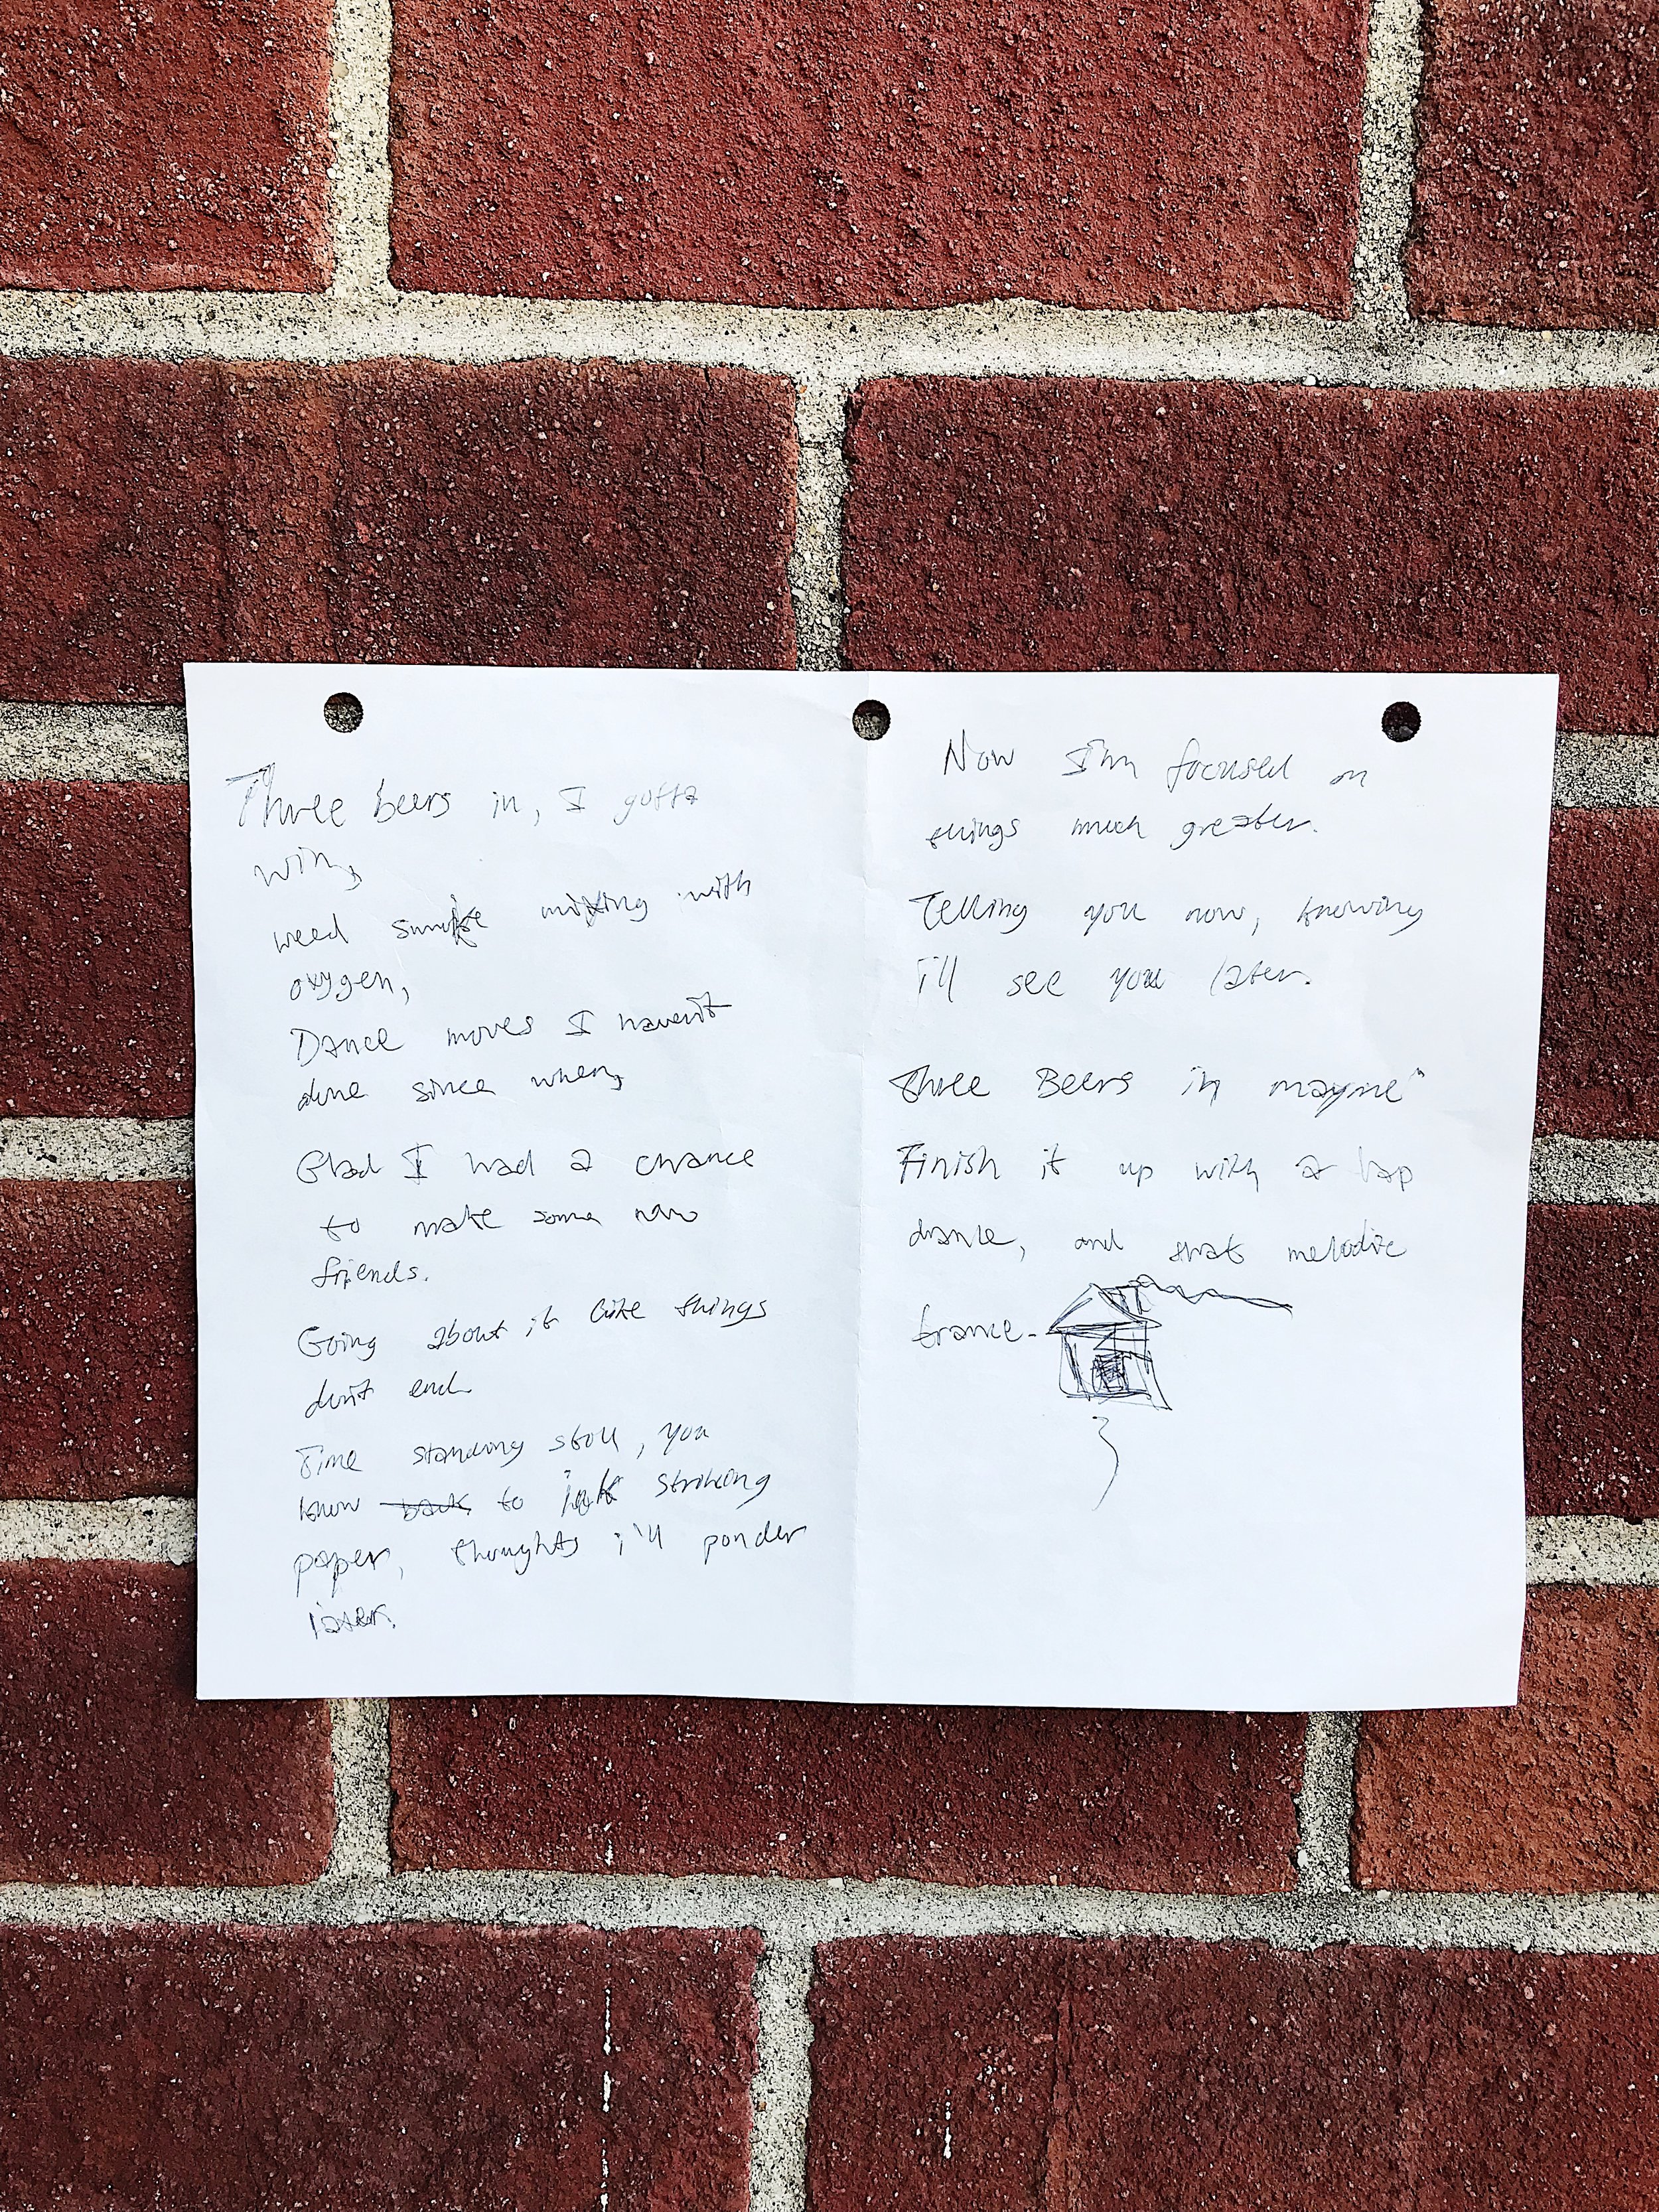 Three beers in, I gotta
win,
weed smoke mixing with
oxygen,
Dance moves I haven't
done since when,
Glad I had a chance
to make some new
friends.
Going about it like things
don't end
Time standing still, you
know back to ink striking
paper, thoughts i'll ponder
later.
Now I'm focused on
things much greater.
Telling you now, knowing
I'll see you later.
Three Beers in
Finish it up with a tap
dance, and that melodic
trance.